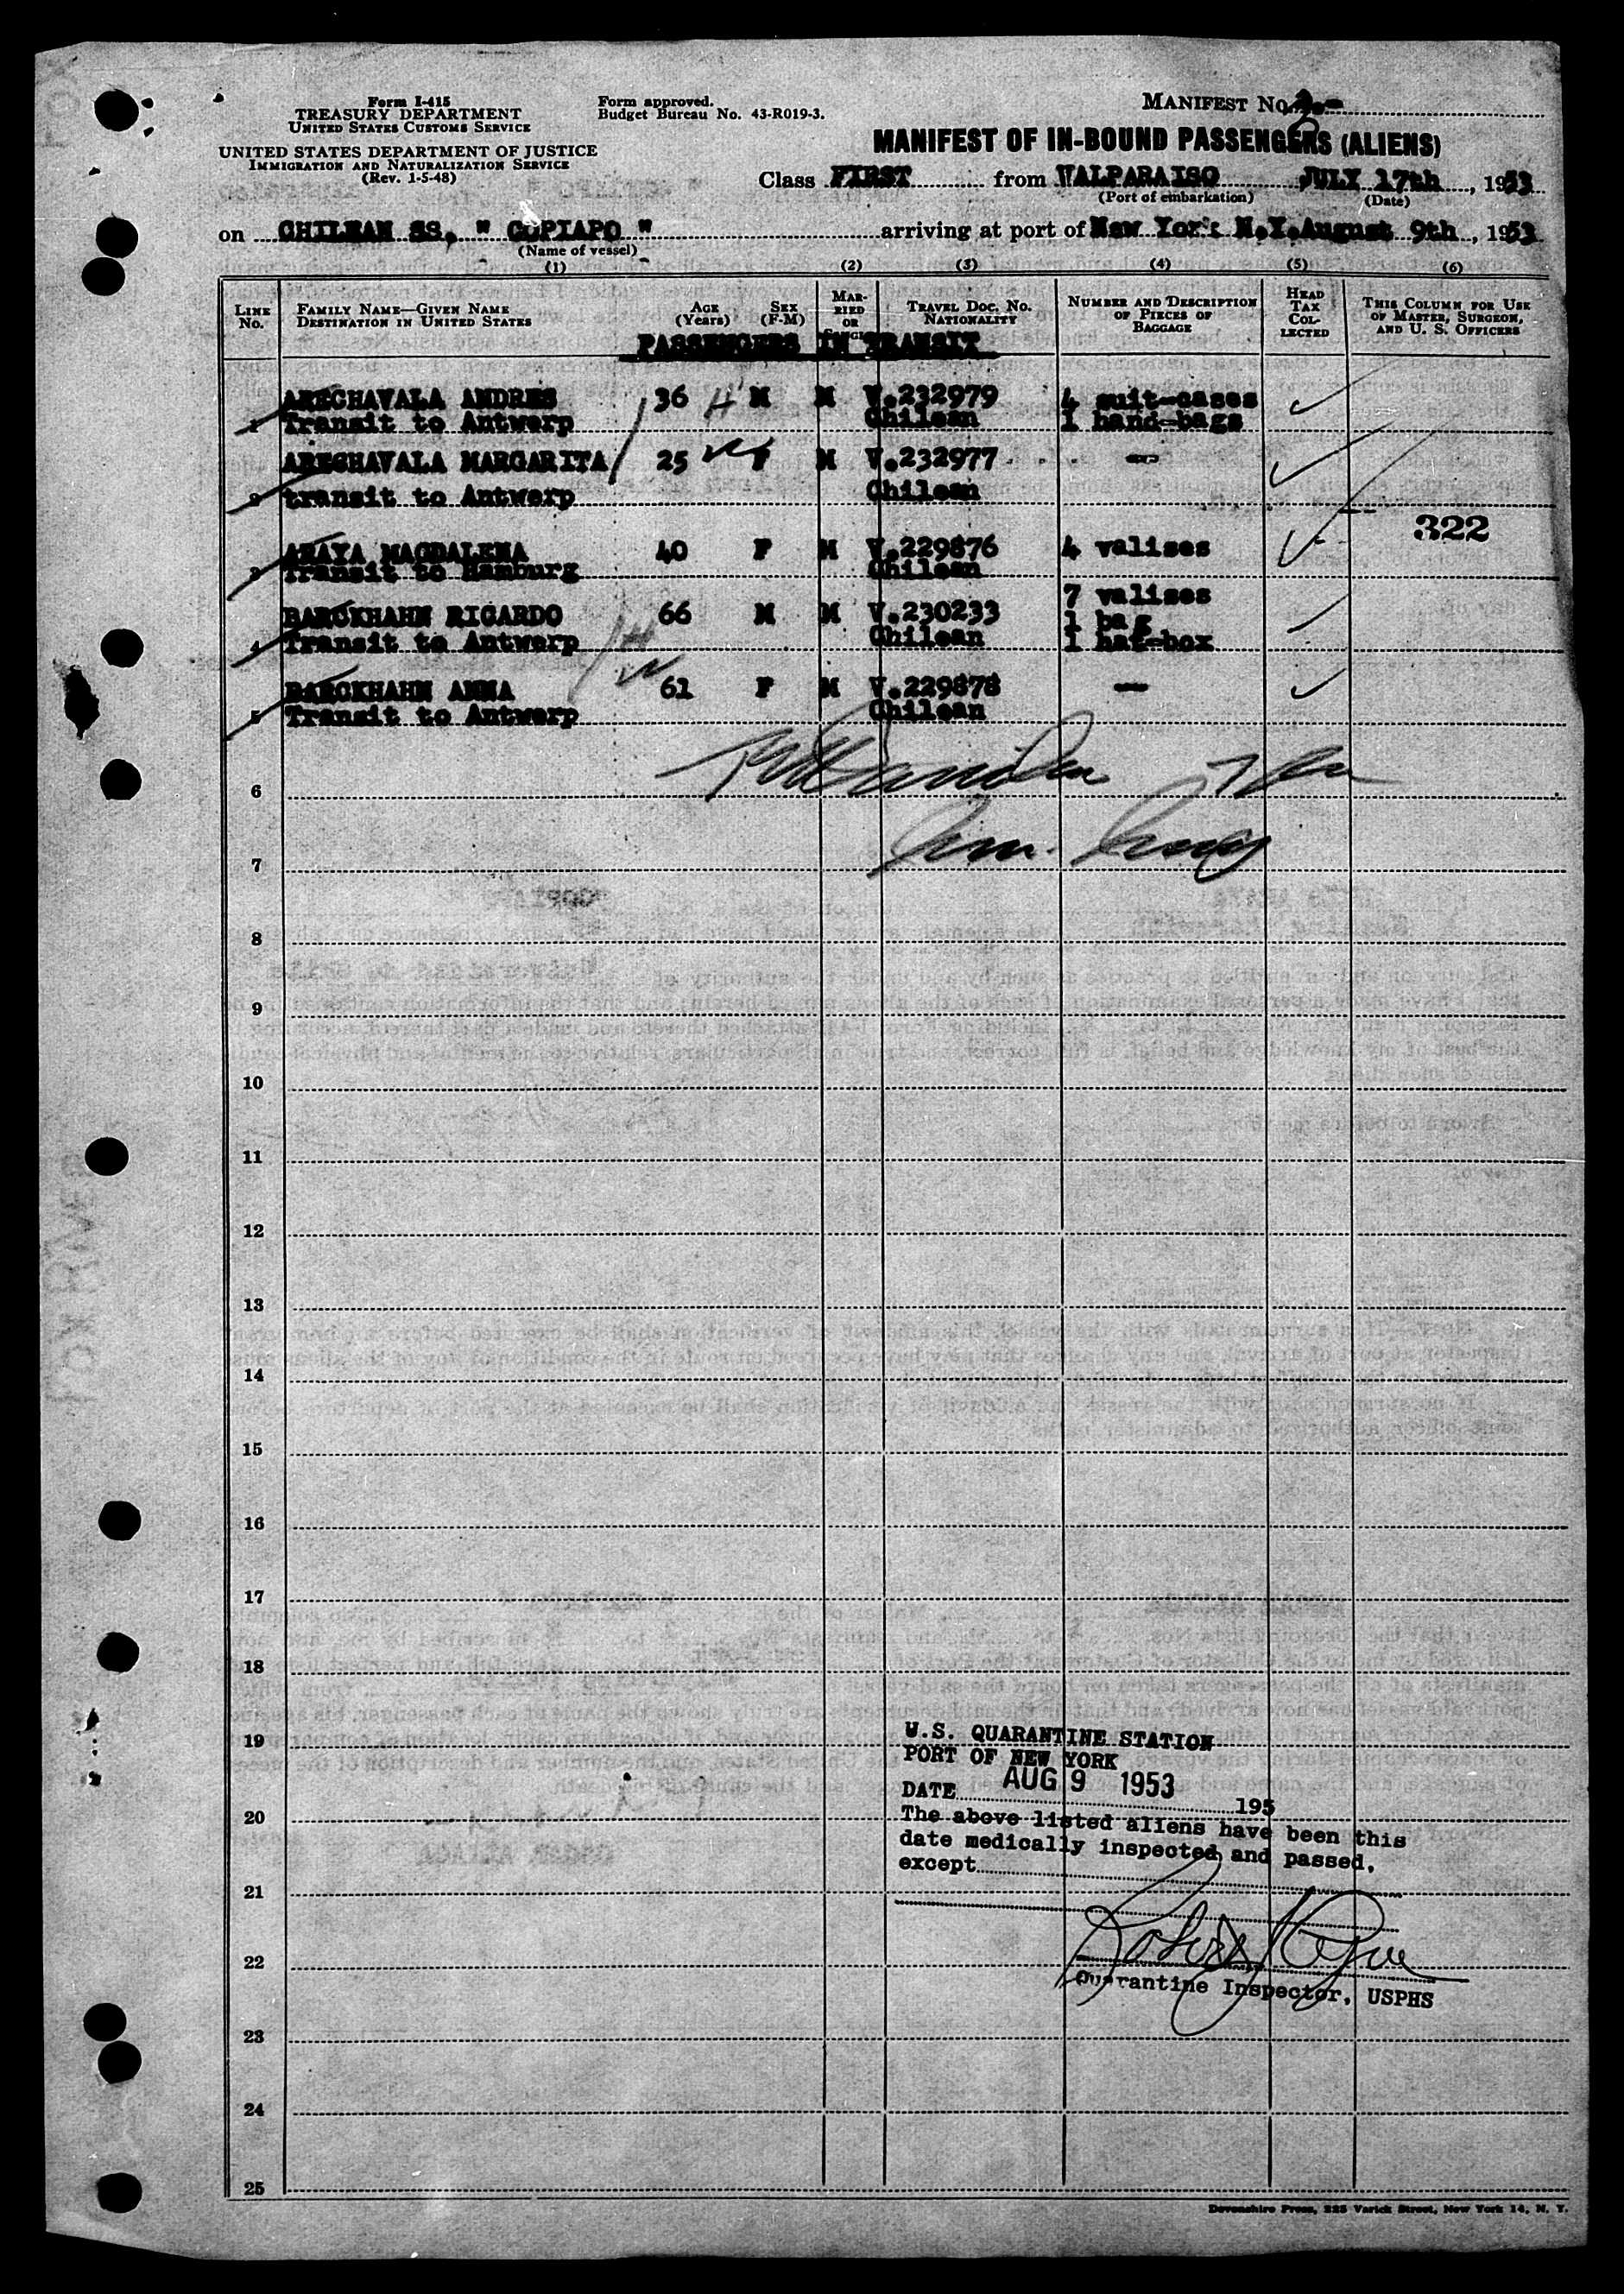 Form I-415
TREASURY DEPARTMENT
UNITED STATES CUSTOMS SERVICE
UNITED STATES DEPARTMENT OF JUSTICE
IMMIGRATION AND NATURALIZATION SERVICE
(Rev. 1-5-48)
Form approved.
Budget Bureau No. 43-R019-3.
MANIFEST No. 2.-
MANIFEST OF IN-BOUND PASSENGERS (ALIENS)
Class FIRST from VALPARAISO JULY 17th, 1953
(Port of embarkation) (Date)
on CHILEAN SS. " COPIAPO " arriving at port of New York N.Y. August 9th, 1953
(Name of vessel)
(1) (2) (3) (4) (5) (6)
LINE No. FAMILY NAME—GIVEN NAME DESTINATION IN UNITED STATES AGE (Years) SEX (F-M) MARRIED OR SINGLE TRAVEL DOC. NO. NATIONALITY NUMBER AND DESCRIPTION OF PIECES OF BAGGAGE HEAD TAX COLLECTED THIS COLUMN FOR USE OF MASTER, SURGEON, AND U. S. OFFICERS
PASSENGERS IN TRANSIT
ARECHAVALA ANDRES 36 M M V.232979 4 suit-cases
1 Transit to Antwerp Chilean 1 hand-bags
ARECHAVALA MARGARITA 25 F M V.232977 -
2 transit to Antwerp Chilean
322
ARAYA MAGDALENA 40 F M V.229876 4 valises
3 Transit to Hamburg Chilean
7 valises
BARCKHAHN RICARDO 66 M M V.230233 1 bag
4 Transit to Antwerp Chilean 1 hat-box
BARCKHAHN ANNA 61 F M V.229878 -
5 Transit to Antwerp Chilean
6
7
8
9
10
11
12
13
14
15
16
17
18
19
20
21
22
23
24
25
U.S. QUARANTINE STATION
PORT OF NEW YORK
DATE AUG 9 1953 195
The above listed aliens have been this
date medically inspected and passed,
except
Quarantine Inspector, USPHS
Devonshire Press, 225 Varick Street, New York 14, N. Y.